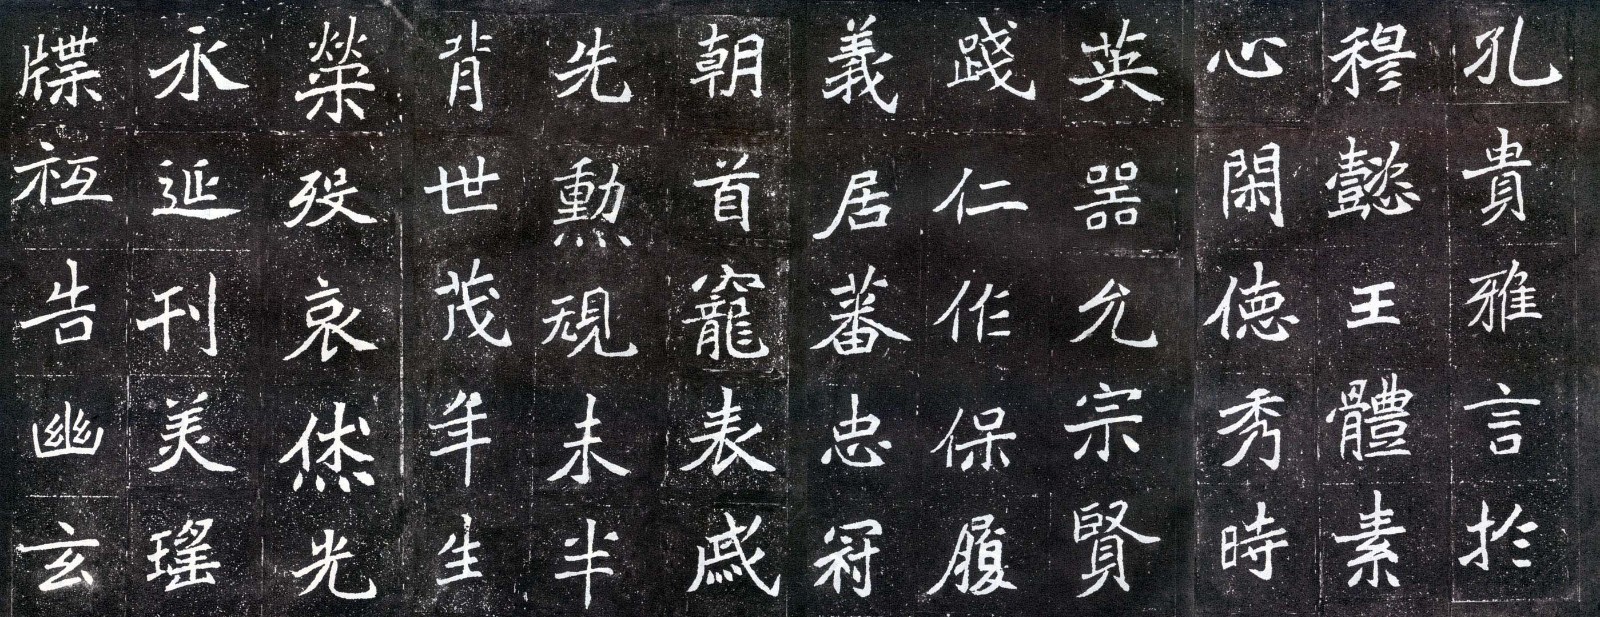 孔貴雅言於
穆懿王體素
心閑德秀時
英器允宗賢
踐仁作保履
義居蕃忠冠
朝首寵表戚
先勲規未半
背世茂年生
榮殁哀烋光
永延刊美瑤
牒祗告幽玄